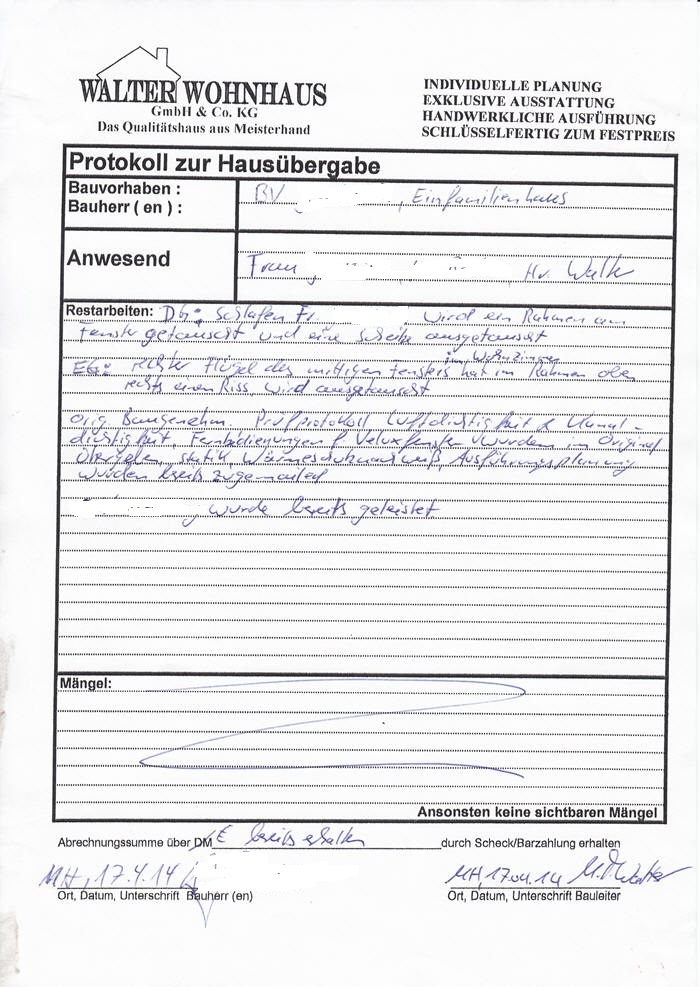 WALTER WOHNHAUS
GmbH & Co. KG
Das Qualitätshaus aus Meisterhand
INDIVIDUELLE PLANUNG
EXKLUSIVE AUSSTATTUNG
HANDWERKLICHE AUSFÜHRUNG
SCHLÜSSELFERTIG ZUM FESTPREIS
Protokoll zur Hausübergabe
Bauvorhaben :
Bauherr ( en ) :
BV , Einfamilienhaus
Anwesend
Frau , Hr. Walter
Restarbeiten: DG: Schlafen Fr. wird ein Rahmen am
Fenster getauscht und eine Scheibe ausgetauscht
im Wohnzimmer
EG: rechter Flügel des mittigen Fensters hat im Rahmen oben
rechts einen Riss, wird ausgetauscht
orig. Baugenehm. Prüfprotokoll Luftdichtigkeit & Kanal-
dichtigkeit, Fernbedienungen f. Veluxfenster wurden im Original
übergeben, Statik, Wärmeschutznachweis, Ausführungsplanung
wurden bereits zugemailed
wurde bereits geleistet
Mängel:
Ansonsten keine sichtbaren Mängel
Abrechnungssumme über DM € bereits erhalten durch Scheck/Barzahlung erhalten
MH, 17.4.14
Ort, Datum, Unterschrift Bauherr (en)
MH, 17.04.14 M. Walter
Ort, Datum, Unterschrift Bauleiter